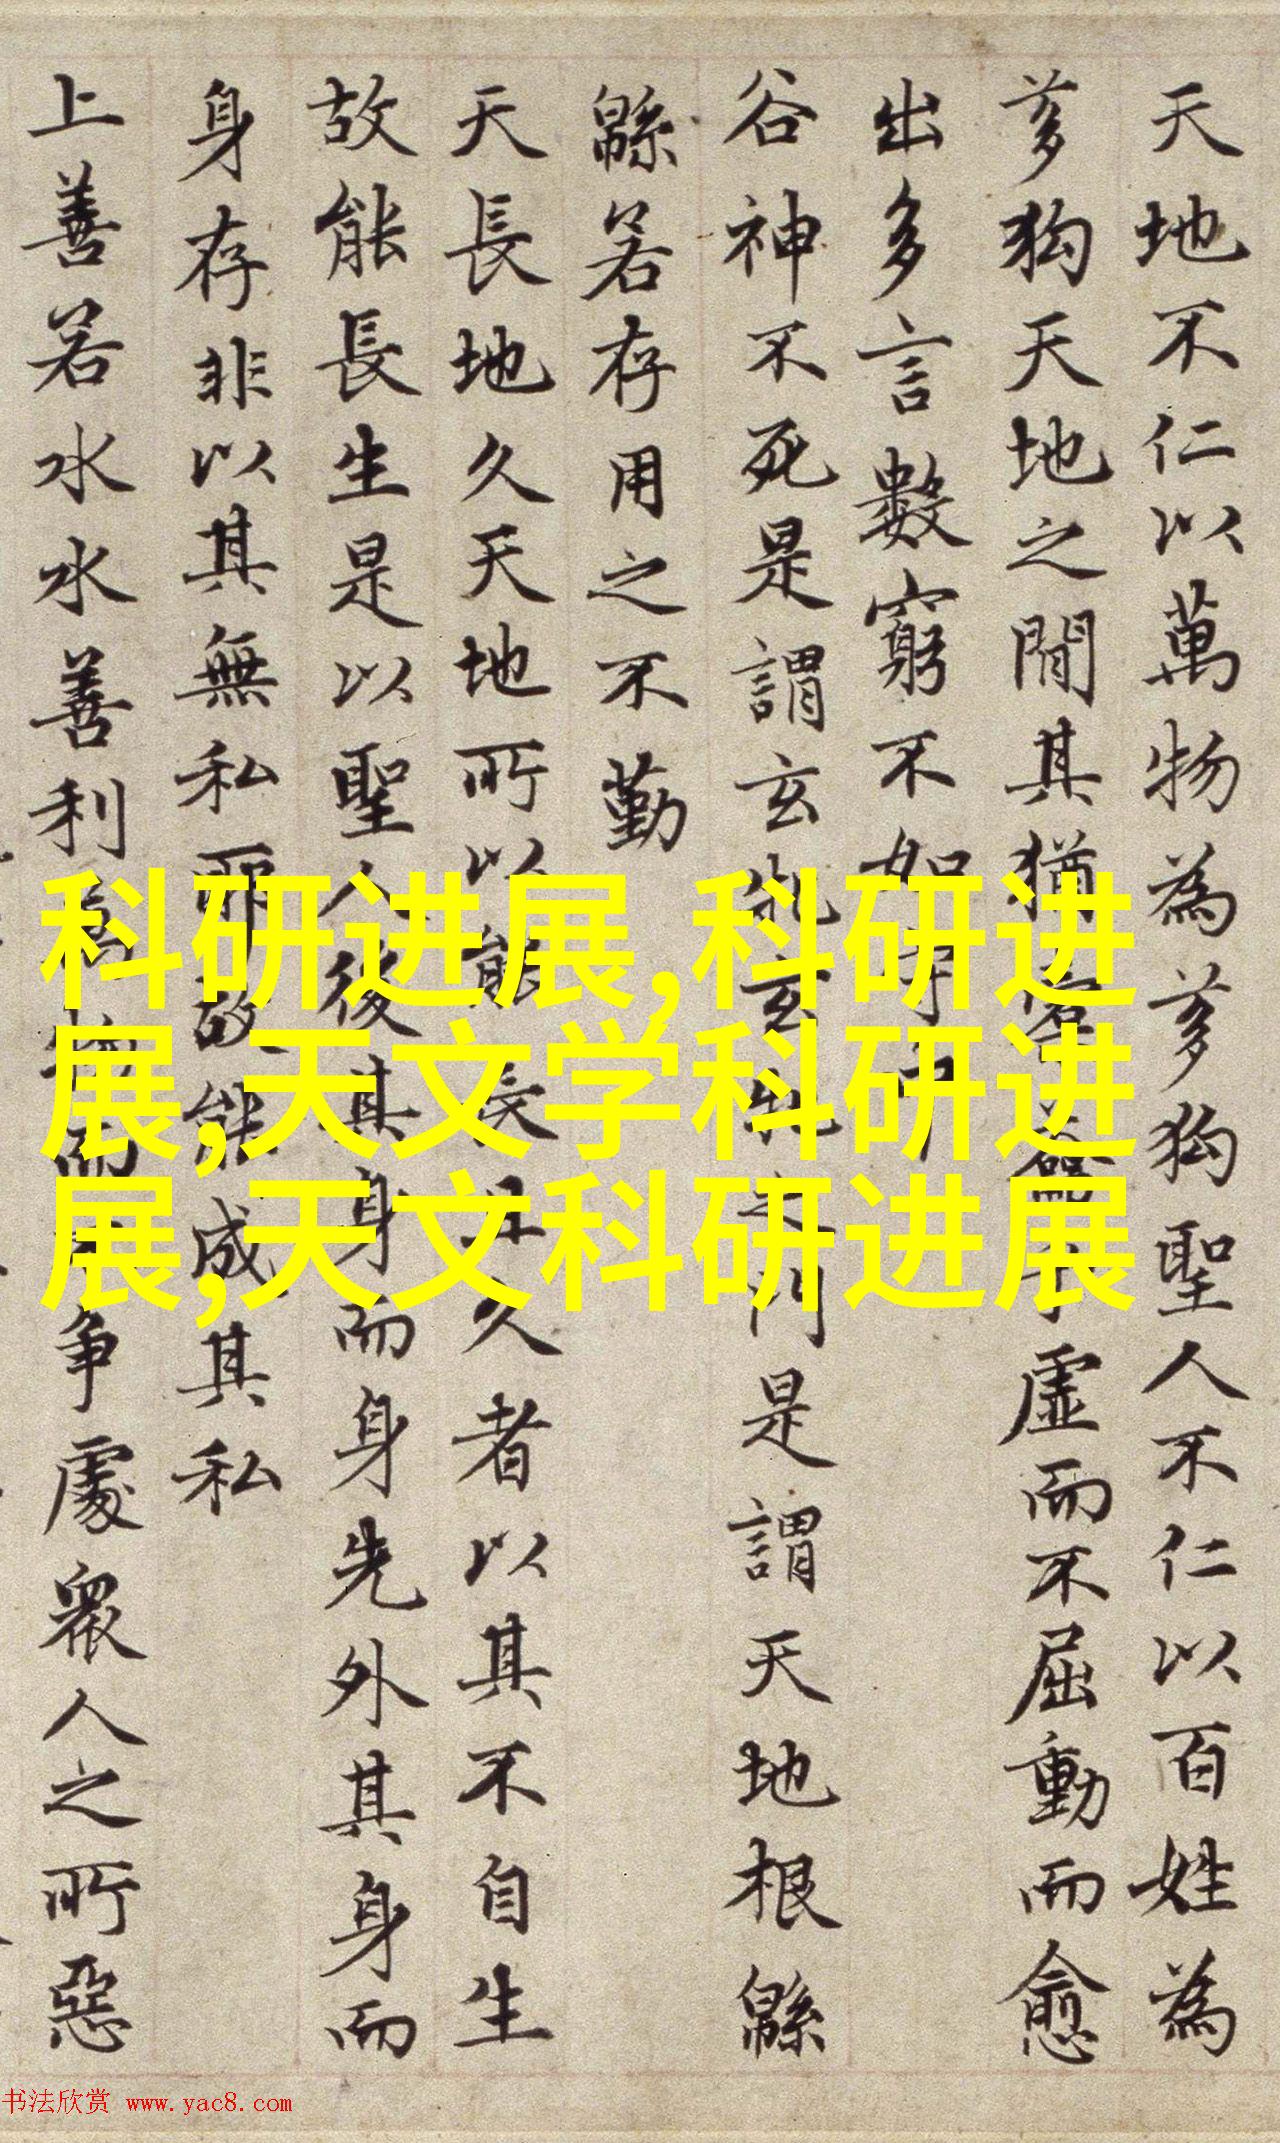 天地不仁以萬物為芻狗聖人不仁以百姓為
芻狗天地之間其猶橐籥乎虛而不屈動而愈
出多言數窮不如守中
谷神不死是謂玄牝玄牝之門是謂天地根緜
緜若存用之不勤
天長地久天地所以能長且久者以其不自生
故能長生是以聖人後其身而身先外其身而
身存非以其無私耶故能成其私
上善若水水善利萬物而不爭處衆人之所惡
科研进展,科研进
展,天文学科研进
展,天文科研进展
书法欣赏 www.yac8.com